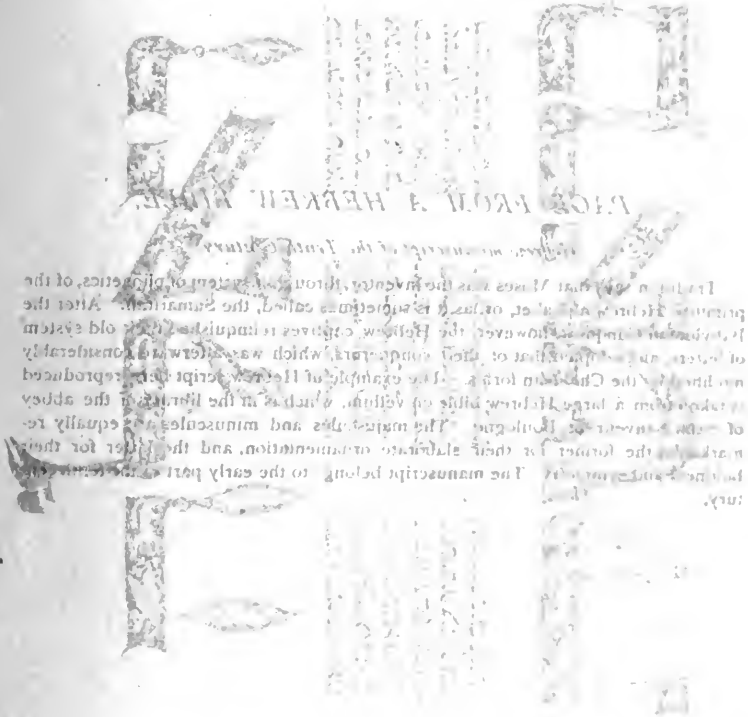 PAGE FROM A HEBREW BIBLE.
Hebrew manuscript of the Tenth Century
that Moses was the inventor, through system of phonetics, of the
Hebrew or, as it is sometimes called, the Samaritan. After the
however, the Hebrew captives relinquished their old system
of letters, and that of their conquerors, which was afterward considerably
the Chaldean forms. The example of Hebrew script here reproduced
is taken from a large Hebrew bible on vellum, which is in the library of the abbey
of Boulogne. The majuscules and minuscules are equally re-
the former for their elaborate ornamentation, and the latter for their
The manuscript belongs to the early part of the
tury.